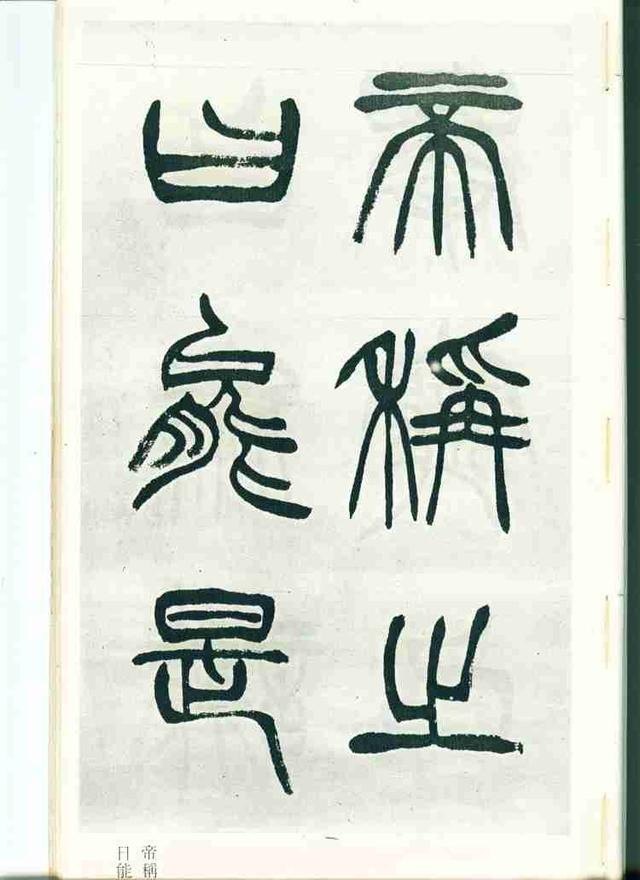 帝稱之
曰能是
帝稱
曰能